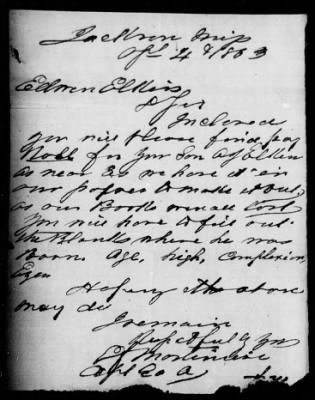 Jackson Miss
Apl 4th 1863
Edwen Elkins
D Sir
Inclosed
you will Please find pay
Roll for your Son A J Elkin
as near as we have it in
our papers to make it out,
as our Books are all lost
You will have to fill out
the Blanks where he was
Born Age, high, Complexion,
Eyes
Hoping the above
may do
I remain
Respectfully Yrs
J Mortimore
Co A